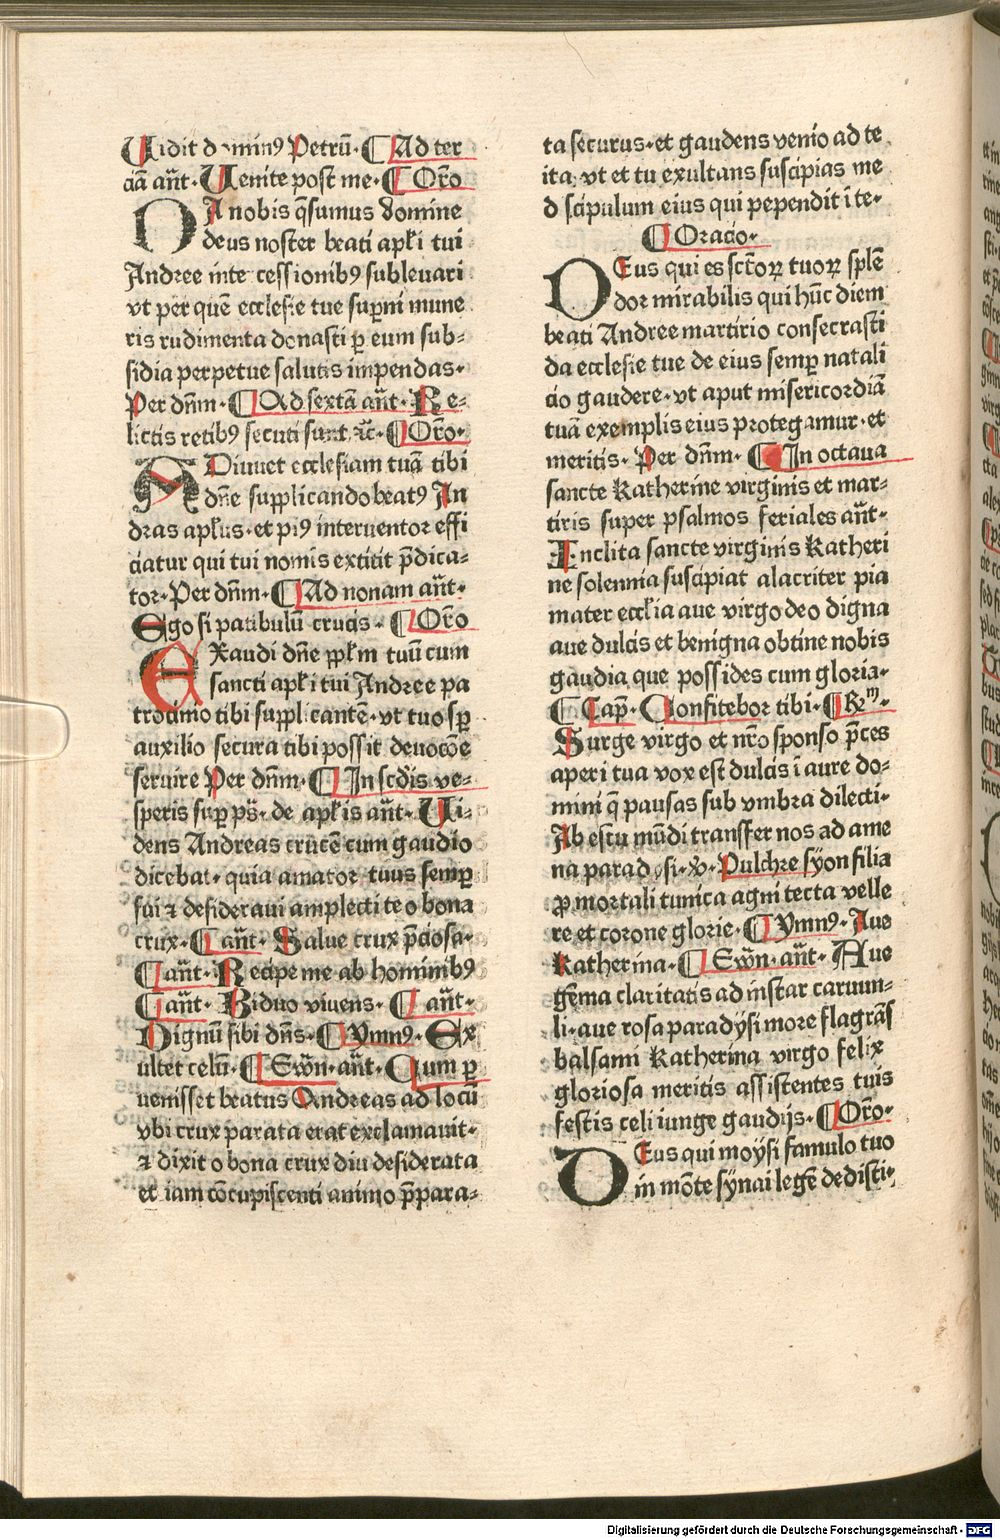 Uidit dominꝰ Petrū. ¶ Ad ter
ciā an̄t. Uenite post me. ¶ Or̄o
DA nobis q̄sumus domine
deus noster beati apl̄i tui
Andree inte cessionibꝰ subleuari
vt per quē ecclesie tue sup̄ni mune
ris rudimenta donasti ꝑ eum sub⸗
sidia perpetue salutis impendas.
Per dn̄m. ¶ Ad sextā an̄t. Re⸗
lictis retibꝰ secuti sunt ꝛc̄. ¶ Or̄o.
ADiuuet ecclesiam tuā tibi
dn̄e supplicando beatꝰ An
dras apl̄us. et piꝰ interuentor effi
ciatur qui tui nomīs extitit p̄dica⸗
tor. Per dn̄m. ¶ Ad nonam an̄t.
Ego si patibulū crucis. ¶ Or̄o
EXaudi dn̄e ppl̄m tuū cum
sancti apl̄i tui Andree pa
trocimo tibi supplicantē. vt tuo sꝑ
auxilio secura tibi possit deuocōe
seruire Per dn̄m. ¶ In scd̄is ve⸗
speris suꝑ ps̄. de apl̄is an̄t. Ui⸗
dens Andreas crucē cum gaudio
dicebat. quia amator tuus semꝑ
fui ⁊ desideraui amplecti te o bona
crux. ¶ an̄t. Salue crux p̄ciosa.
¶ an̄t. Recipe me ab hominibꝰ
¶ an̄t. Biduo viuens. ¶ an̄t.
Dignū sibi dn̄s. ¶ Ymnꝰ. Ex
ultet celū. ¶ Ewn̄. an̄t. Cum ꝑ
uenisset beatus Andreas ad locū
vbi crux parata erat exclamauit.
⁊ dixit o bona crux diu desiderata
et iam cōcupiscenti animo p̄para⸗
ta securus. et gaudens venio ad te
ita. vt et tu exultans suscipias me
d scipulum eius qui pependit ī te.
¶ Oracio.
DEus qui es sct̄oꝝ tuoꝝ splē
dor mirabilis qui hūc diem
beati Andree martirio consecrasti
da ecclesie tue de eius semꝑ natali
cio gaudere. vt aput misericordiā
tuā exemplis eius protegamur. et
meritis. Per dn̄m. ¶ In octaua
sancte Katherine virginis et mar⸗
tiris super psalmos feriales an̄t.
Inclita sancte virginis Katheri
ne solennia suscipiat alacriter pia
mater eccl̄ia aue virgo deo digna
aue dulcis et benigna obtine nobis
gaudia que possides cum gloria.
¶ Cap̄. Confitebor tibi. ¶ Rm̄.
Surge virgo et nr̄o sponso p̄ces
aperi tua vox est dulcis ī aure do⸗
mini q̄ pausas sub vmbra dilecti.
Ab estu mūdi transfer nos ad ame
na parad si. ꝟ. Pulchre sÿon filia
ꝓ mortali tunica agni tecta velle
re et corone glorie. ¶ Ymnꝰ. Aue
Katherina. ¶ Ewn̄. an̄t. Aue
gēma claritatis ad instar carbun⸗
li. aue rosa paradÿsi more flagrās
balsami Katherina virgo felix
gloriosa meritis assistentes tuis
festis celi iunge gaudijs. ¶ Or̄o.
DEus qui moÿsi famulo tuo
in mōte sÿnai legē dedisti.
Digitalisierung gefördert durch die Deutsche Forschungsgemeinschaft - DFG